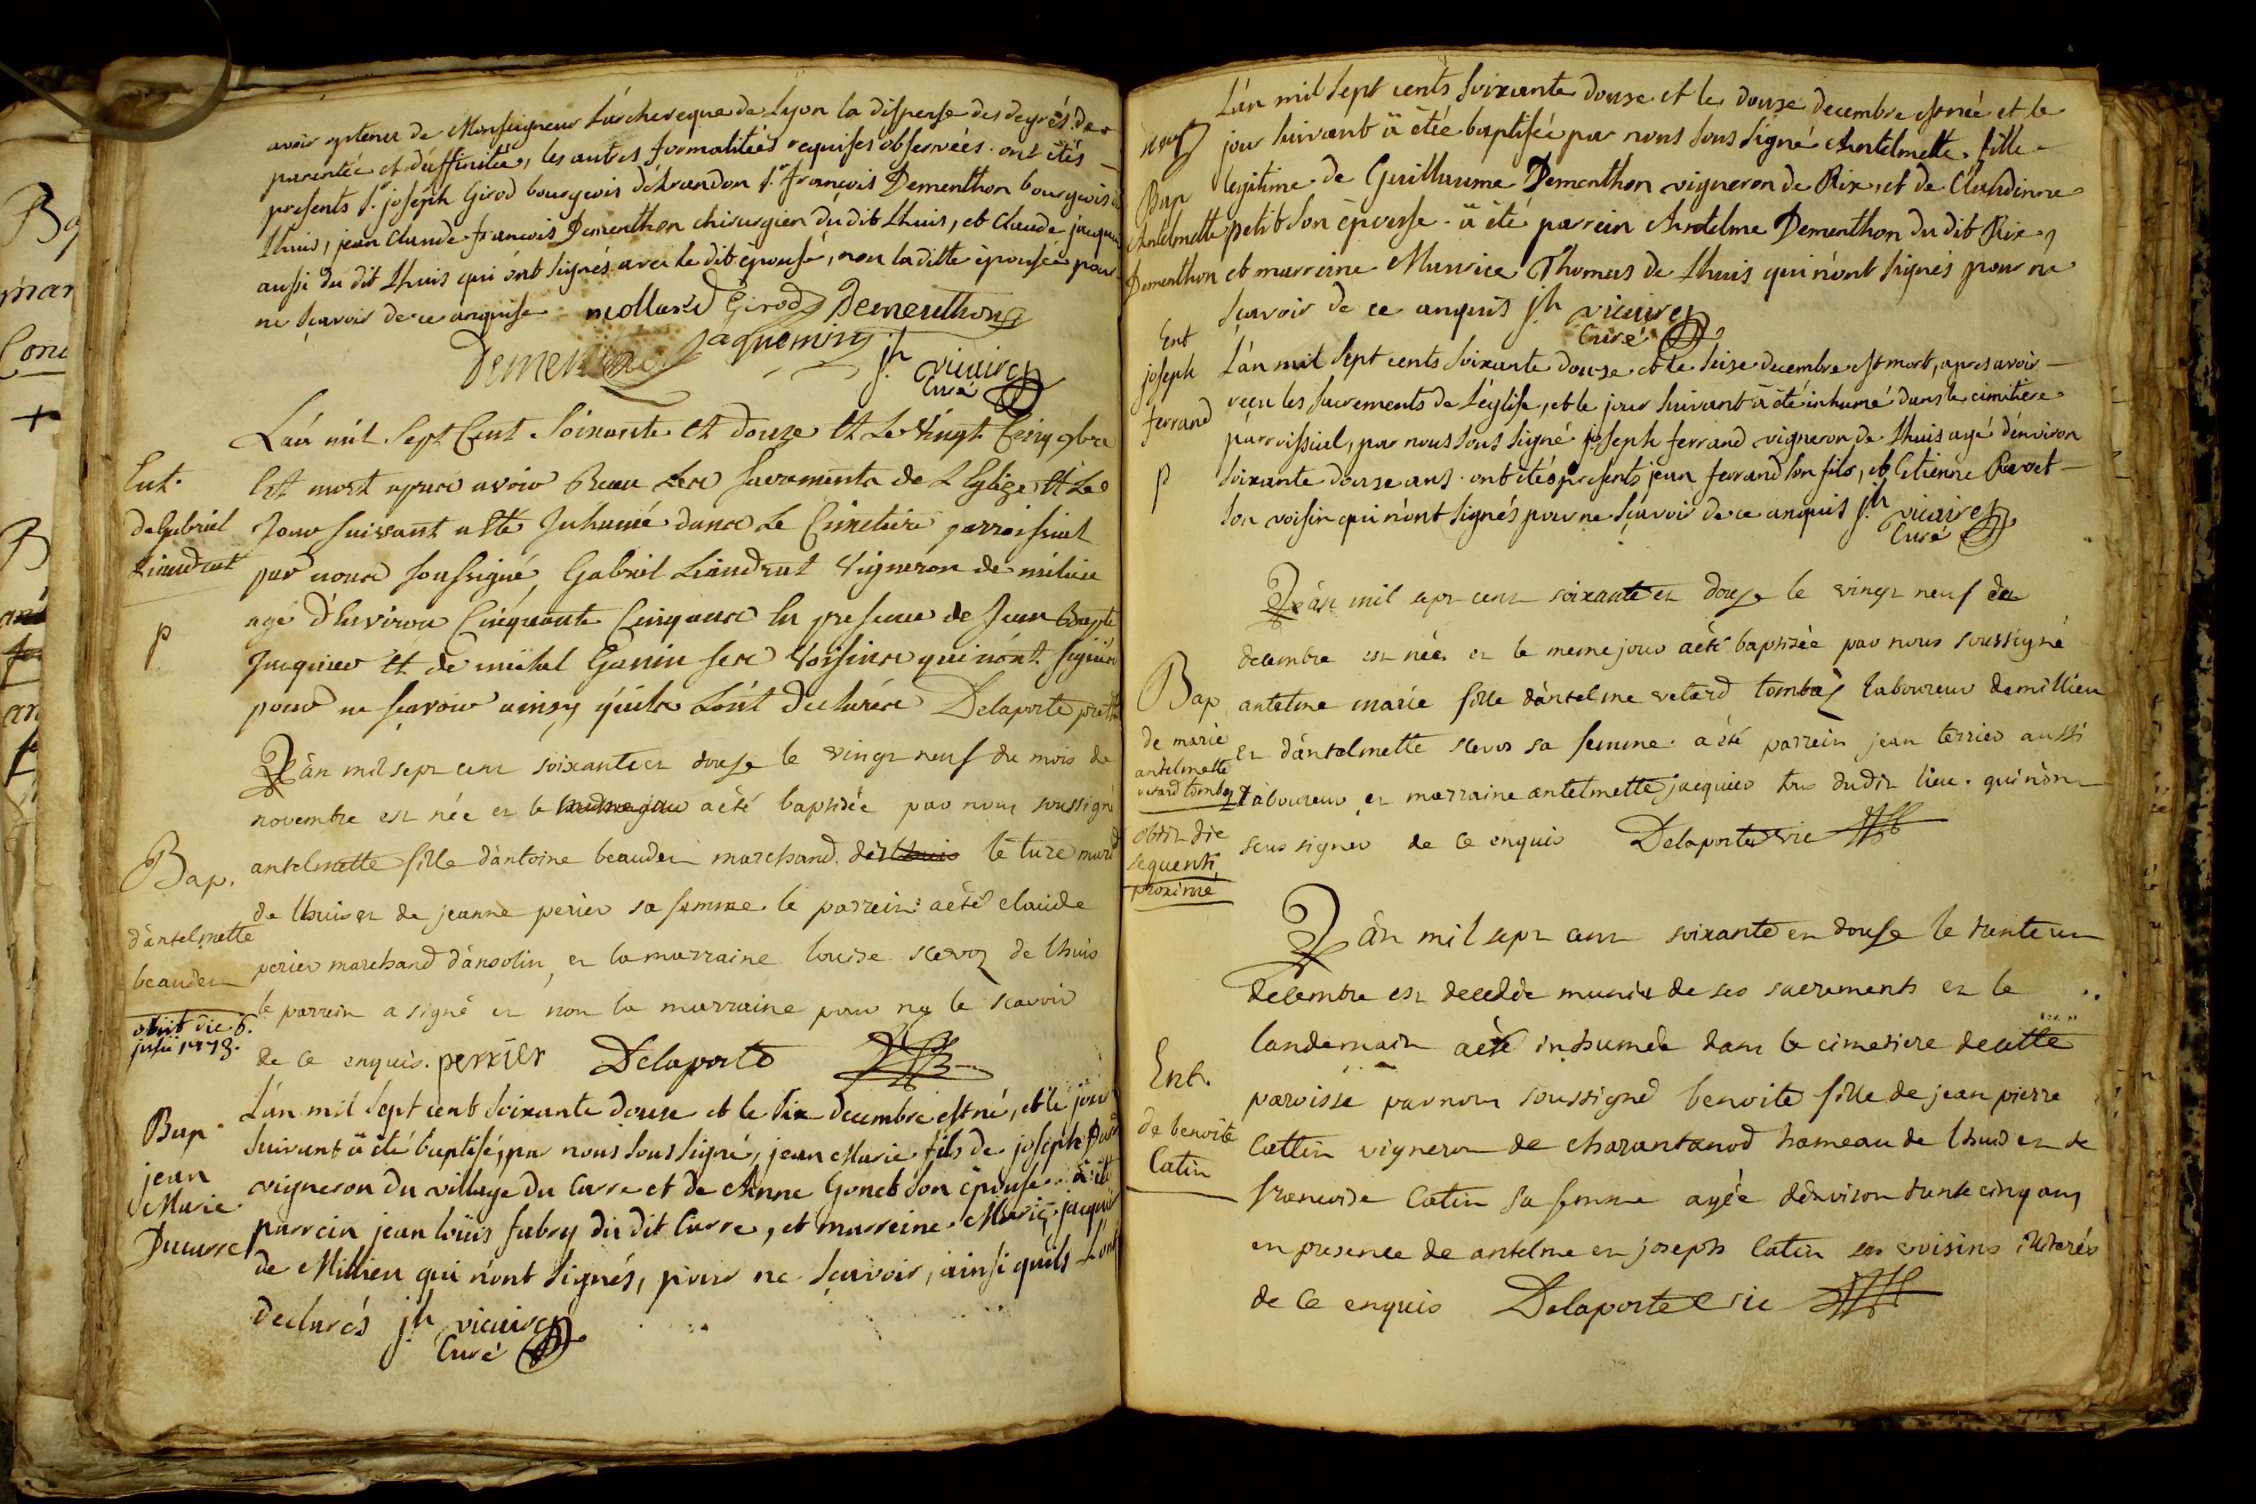 avoir optenu de Monseigneur L'archeveque de Lyon la dispense des degrés de
parentée et d'affinitée, les autres formalitées requises observées. ont étés
presents Sr. joseph Girod bourgeois d'Arandon Sr. françois Dementhon bourgeois
Lhuis, jean Claude françois Dementhon chirurgien du dit Lhuis, et Claude
aussi du dit Lhuis qui ont signés avec le dit épousé, non la ditte épousée pour
ne sçavoir de ce enquise mollard Girod Dementhon
Dementhon Jaquemin jh vicaire
Curé
Ent.
de Gabriel
Liaudrat
p
L'an mil Sept Cent Soixante Et douze Et Le Vingt Cinq 9bre
Est mort apres avoir Receu Les Sacrements de L'Eglize Et Le
Jour suivant a Eté Inhumé dans Le Cimetiere parroissial
par nous soussigné, Gabriel Liaudrat Vigneron de milieu
agé d'Environ Cinquante Cinq ans En presence de Jean Bapte
Jacquier Et de michel Ganin ses Voisins qui n'ont signés
pour ne sçavoir ainsy qu'ils L'ont declarés Delaporte
Bap.
d'antelmette
beaudet
obiit die 6.
julii 1773.
L'an mil sept cent soixante et douse le vingt neuf du mois de
novembre est née et le meme jour a été baptisée par nous soussigné
antelmette fille d'antoine beaudet marchand. de Lhuis
de Lhuis et de jeanne perier sa femme. le parrein a été claude
perier marchand d'ansolin, et la marraine louise de lhuis
le parrein a signé et non la marraine pour ne le scavoir
de ce enquis. perrier Delaporte
Bap.
jean
Marie
Ducarre
L'an mil sept cent soixante douse et le dix decembre est né, et le jour
suivant a été baptisé, par nous sous signé, jean Marie fils de joseph
vigneron du village du Carre et de Anne Gonet son épouse. a été
parrein jean loüis fabry du dit Carre, et marreine Marie
de Millieu qui n'ont signés, pour ne sçavoir, ainsi qu'ils L'ont
declarés jh vicaire
Curé
Bap
Antelmette
Dementhon
L'an mil sept cents soixante douse et le douse decembre est née et le
jour suivant a étée baptisée par nous sous signé Antelmette fille
legitime de Guillaume Dementhon vigneron de Rix, et de Claudinne
petit son épousse. a été parrein Antelme Dementhon du dit Rix
et marreine Maurice Thomas de Lhuis qui n'ont signés pour ne
sçavoir de ce anquis jh vicaire
Curé
Ent
joseph
ferrand
p
L'an mil sept cents soixante douse et le seise decembre est mort, apres avoir
reçu les sacrements de L'église, et le jour suivant a été inhumé dans le cimitiere
parroissial, par nous sous signé joseph ferrand vigneron de Lhuis agé d'environ
soixante douse ans. ont étés presents jean ferrand son fils, et Etienne Ravet
son voisin qui n'ont signés pour ne sçavoir de ce anquis jh vicaire
Curé
Bap
de marie
antelmette
velard tombay
obiit die
sequenti
proximé
L'an mil sept cent soixante et douse le vingt neuf de
decembre est née et le meme jour a été baptisée par nous soussigné
antelme marie fille d'antelme velard tombay laboureur de millieu
et d'antelmette sa femme. a été parrein jean terrier aussi
laboureur et marraine antelmette jacquier tous dudit lieu. qui n'ont
sceu signer de ce enquis Delaporte vic
Ent.
de benoite
Catin
L'an mil sept cent soixante et douse le trente un
decembre est decedée munie de ses sacrements et le
landemain a été inhumée dans le cimetiere de cette
paroisse par nous soussigné benoite fille de jean pierre
Cattin vigneron de charantanod hameau de lhuis et de
francoise Catin sa femme agée d'environ trente cinq ans
en presence de antelme et joseph Catin ses voisins illiterés
de ce enquis Delaporte vic